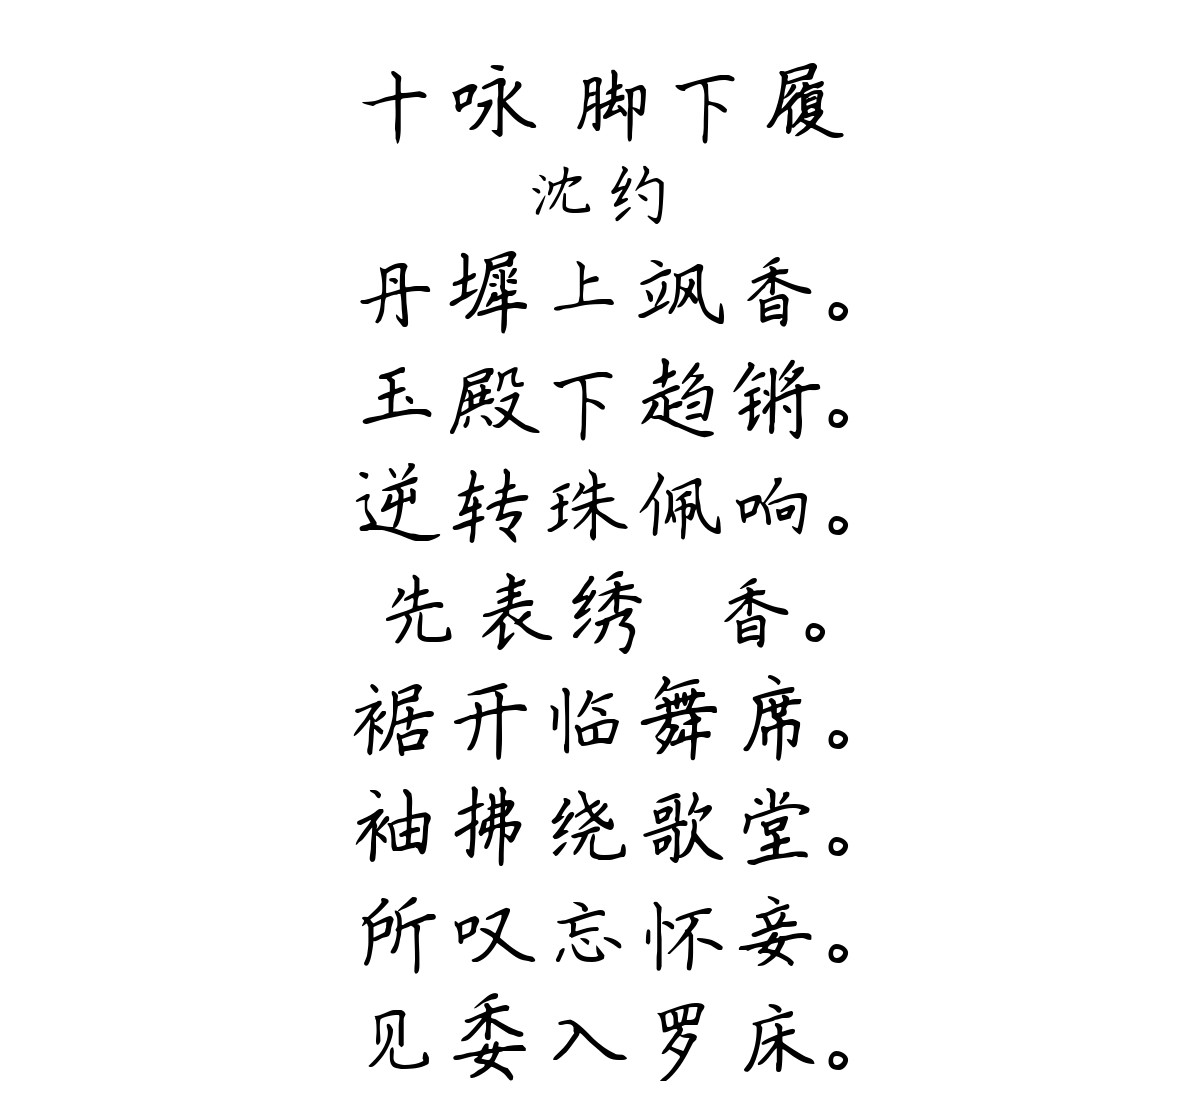 十咏 脚下履
沈约
丹墀上飒香。
玉殿下趋锵。
逆转珠佩响。
先表绣 香。
裾开临舞席。
袖拂绕歌堂。
所叹忘怀妾。
见委入罗床。